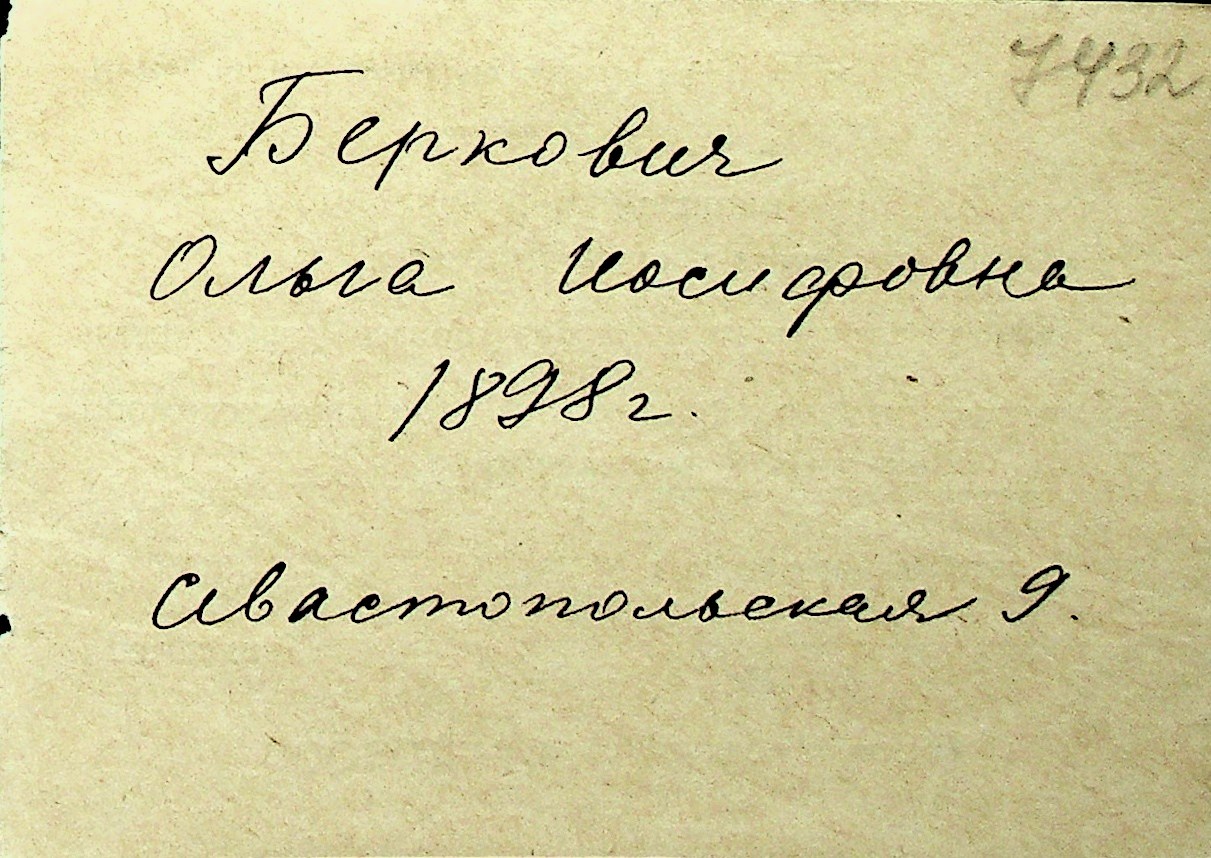 7432
Беркович
Ольга Иосифовна
1898г.
Севастопольская 9.